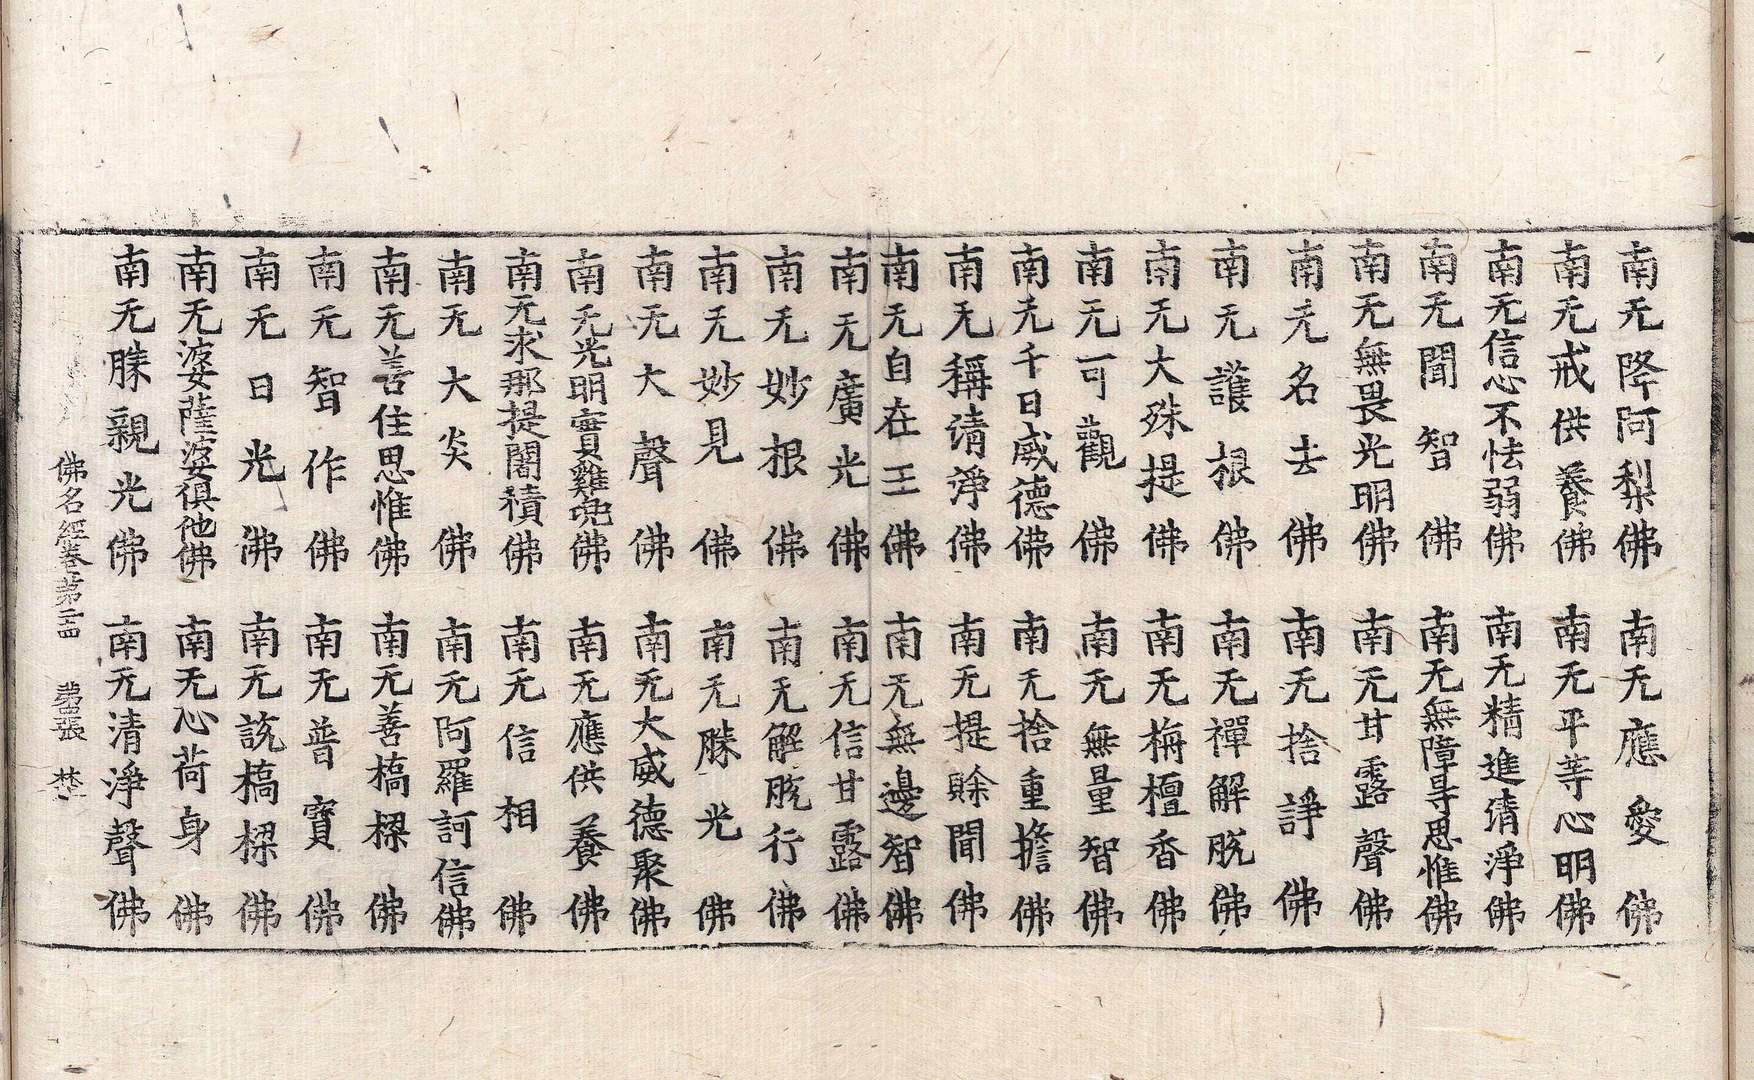 南无降阿梨佛 南无應愛佛
南无戒供養佛 南无平等心明佛
南无信心不怯弱佛 南无精進清淨佛
南无聞智佛 南无無障㝵思惟佛
南无無畏光明佛 南无甘露聲佛
南无名去佛 南无捨諍佛
南无護根佛 南无禪解脫佛
南无大殊提佛 南无栴檀香佛
南无可觀佛 南无無量智佛
南无千日威德佛 南无捨重擔佛
南无稱清淨佛 南无提賖聞佛
南无自在王佛 南无無邊智佛
南无廣光佛 南无信甘露佛
南无妙根佛 南无解脫行佛
南无妙見佛 南无勝光佛
南无大聲佛 南无大威德聚佛
南无光明實雞兜佛 南无應供養佛
南无求那提闍積佛 南无信相佛
南无大炎佛 南无阿羅訶信佛
南无善住思惟佛 南无善槗樑佛
南无智作佛 南无普寶佛
南无日光佛 南无說槗樑佛
南无婆薩婆俱他佛 南无心荷身佛
南无勝親光佛 南无清淨聲佛
佛名經卷第二 張